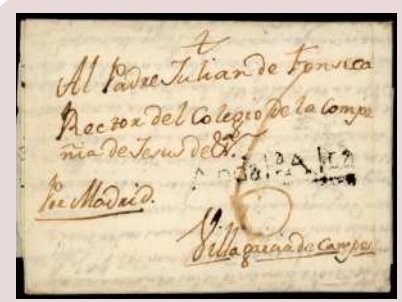 Al Padre Julian de Fonseca
Rector del Colegio de la Compa
ñia de Jesus de
Por Madrid.
6
Villagarcia de Campos